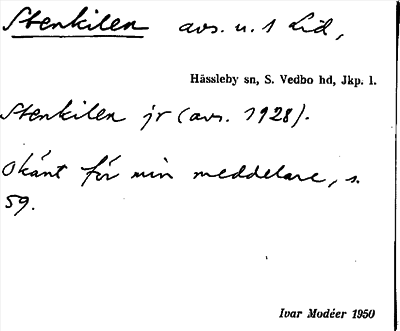 Stenkilen avs. u. 1 Lid,
Hässleby sn, S. Vedbo hd, Jkp. l.
Stenkilen jr (avs. 1928).
Okänt för min meddelare, s.
59.
Ivar Modéer 1950